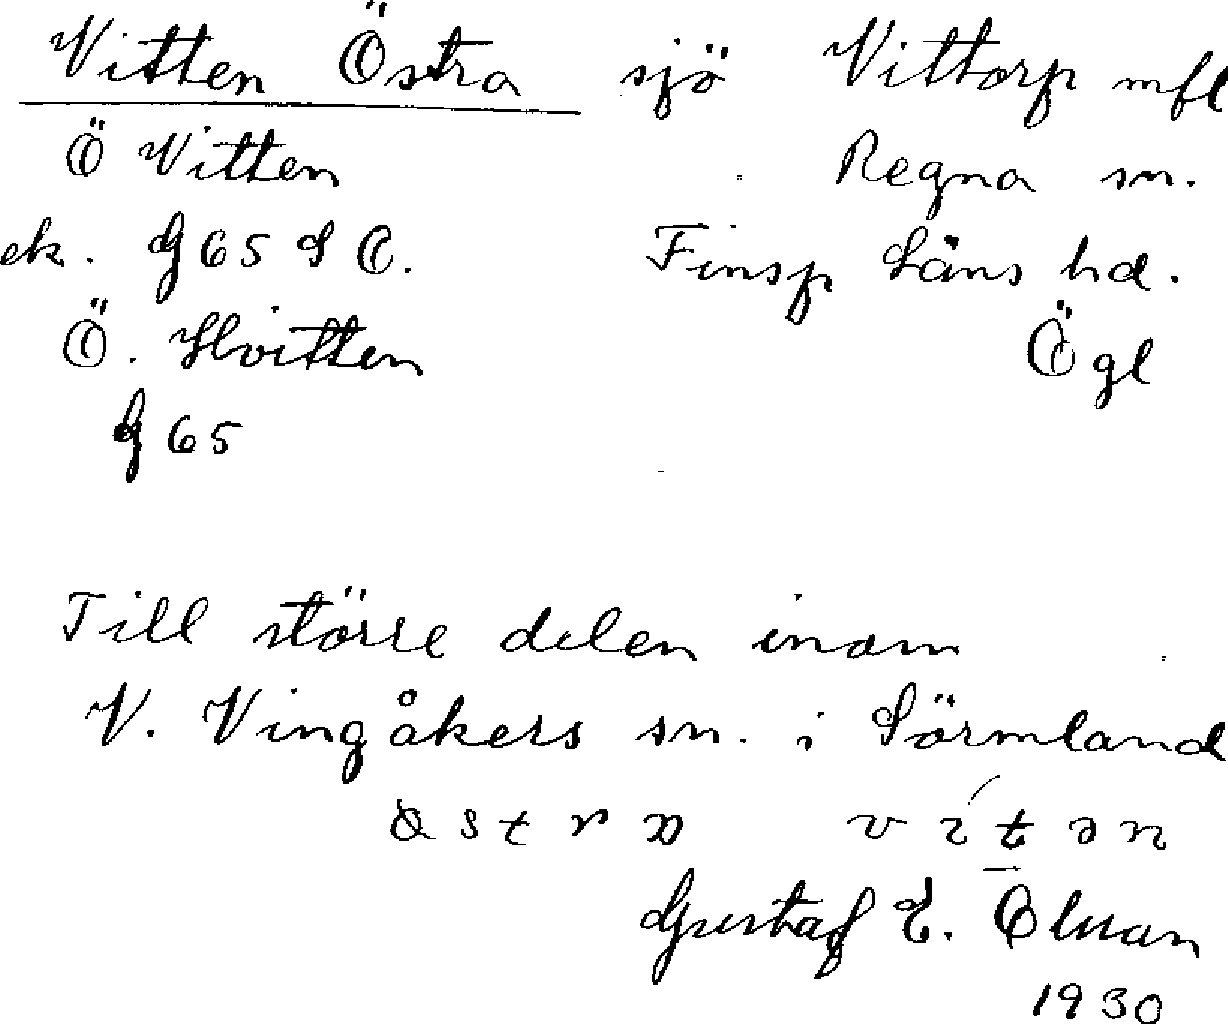 Vitten Östra sjö Vittorp mfl
Ö Vitten Regna sn.
ek. G 65 S O. Finsp Läns hd.
Ö. Hvitten Ögl
G 65
Till större delen inom
V. Vingåkers sn. i Sörmland
Gustaf E.
1930